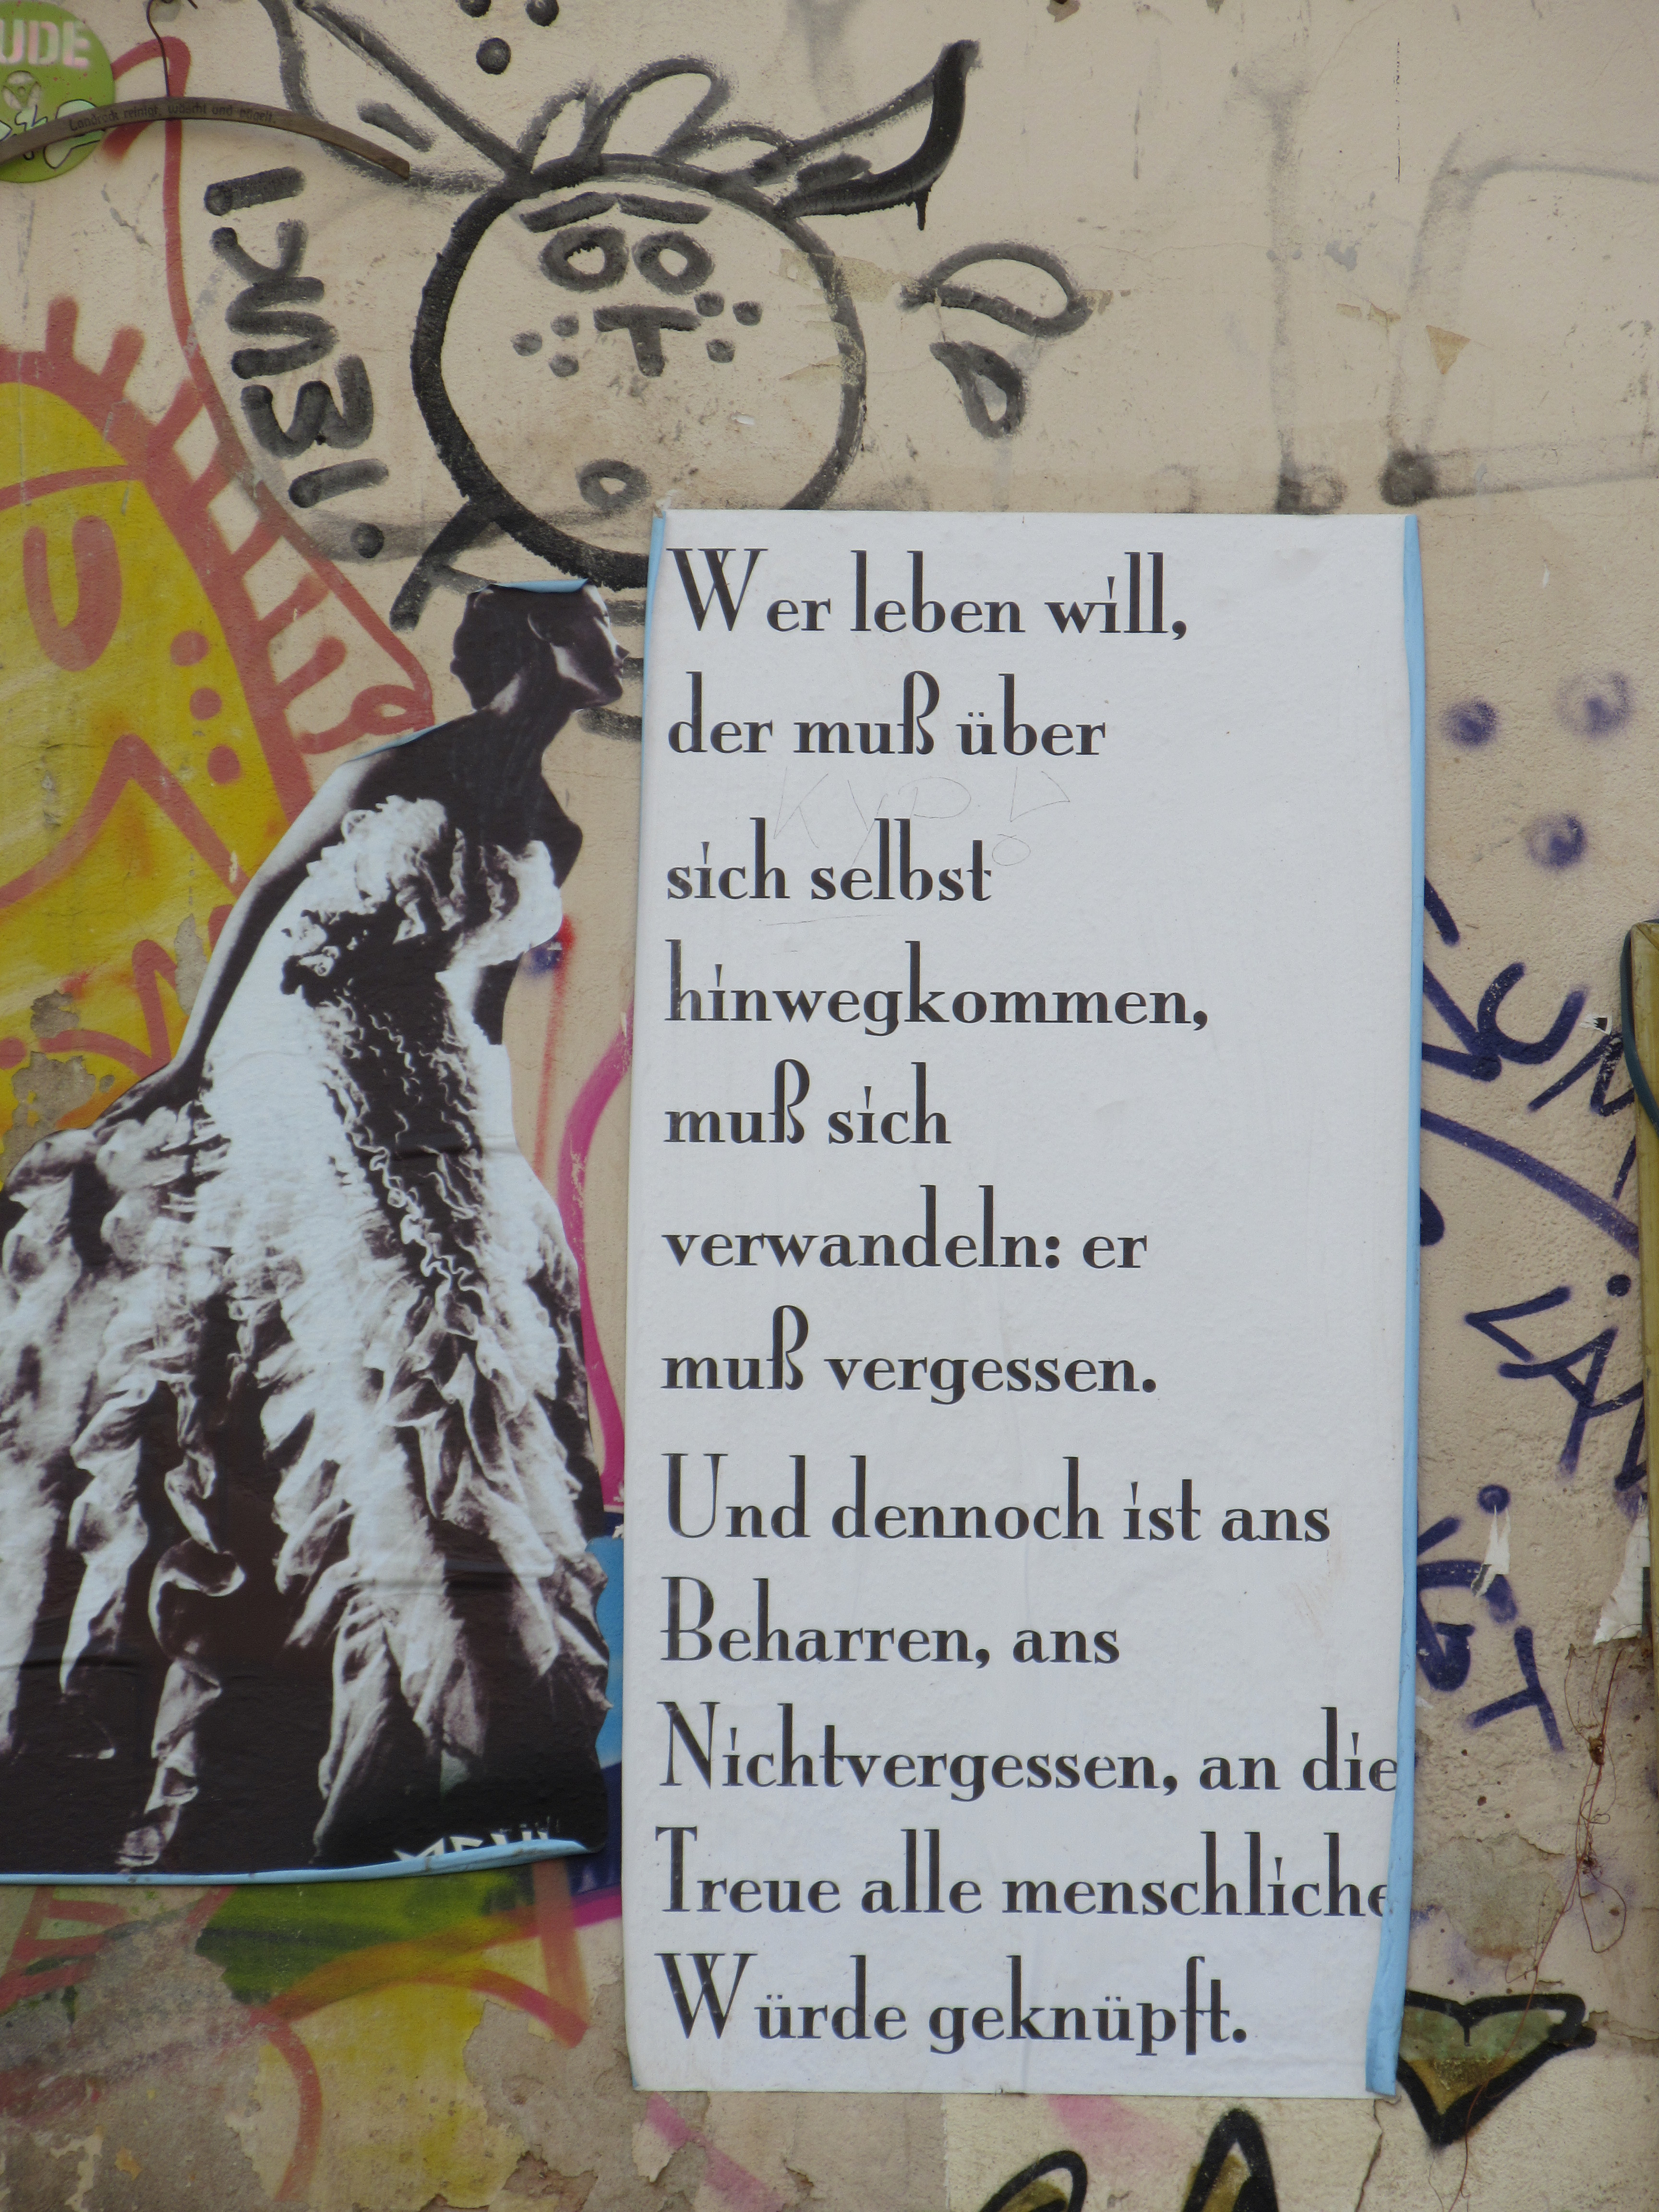 UDE
Landrock reinigt, wäscht und bügelt.
Wer leben will,
der muß über
KYP
sich selbst
hinwegkommen,
muß sich
verwandeln: er
muß vergessen.
Und dennoch ist ans
Beharren, ans
Nichtvergessen, an die
Treue alle menschliche
Würde geknüpft.